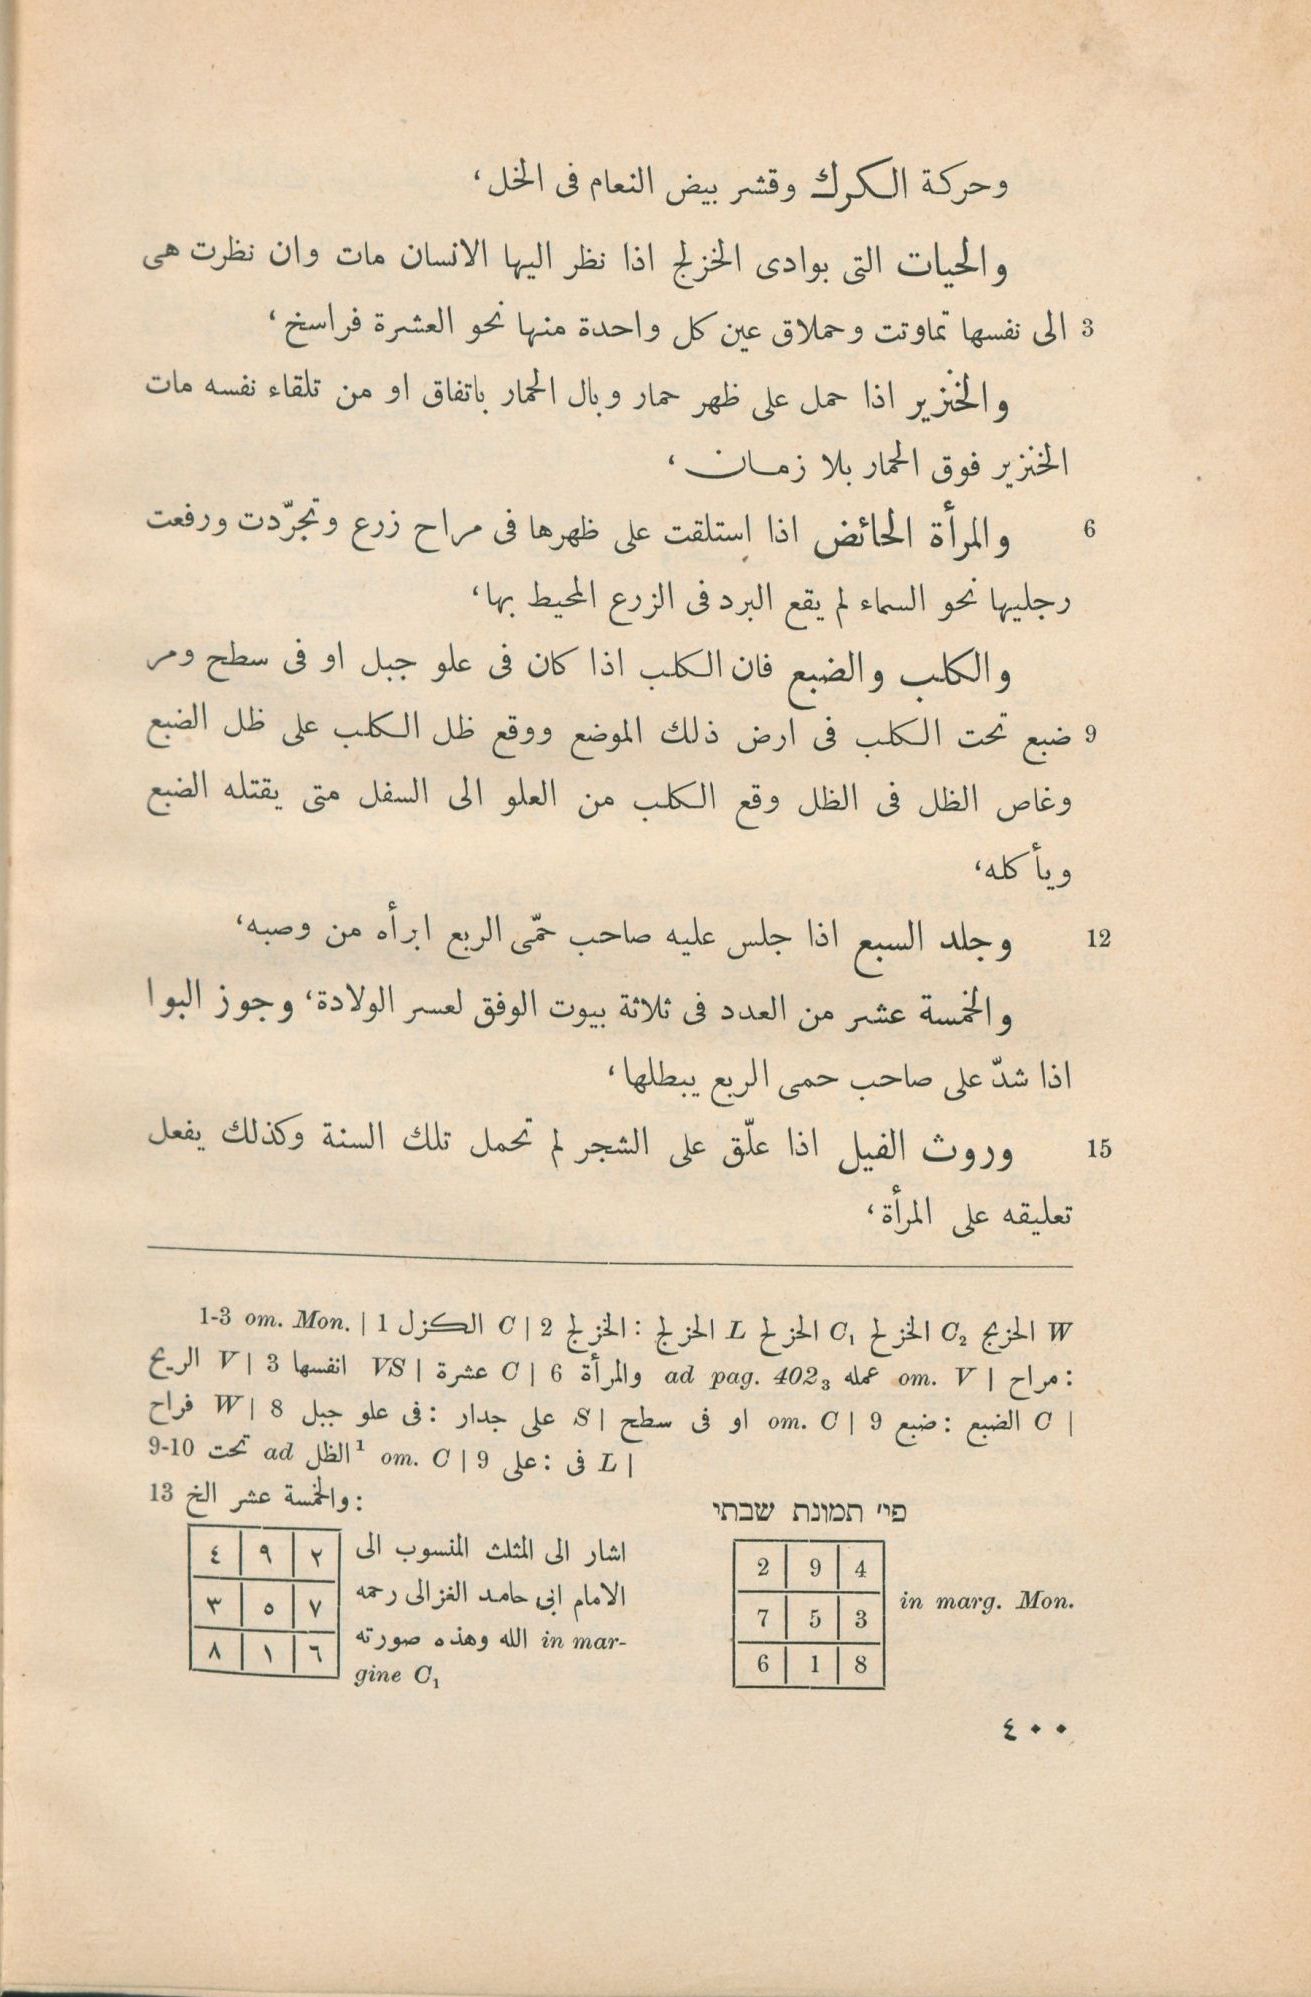 وحركة الكرك وقشر بيض النعام فى الخل،
والحيات التى بوادى الخزلج اذا نظر اليها الانسان مات وان نظرت هى
3 الى نفسها تماوتت وحملاق عين كل واحدة منها نحو العشرة فراسخ،
والخنزير اذا حمل على ظهر حمار وبال الحمار باتفاق او من تلقاء نفسه مات
الخنزير فوق الحمار بلا زمان،
6 والمرأة الحائض اذا استلقت على ظهرها فى مراح زرع وتجرّدت ورفعت
رجليها نحو السماء لم يقع البرد فى الزرع المحيط بها،
والكلب والضبع فان الكلب اذا كان فى علو جبل او فى سطح ومر
9 ضبع تحت الكلب فى ارض ذلك الموضع ووقع ظل الكلب على ظل الضبع
وغاص الظل فى الظل وقع الكلب من العلو الى السفل متى يقتله الضبع
ويأكله،
12 وجلد السبع اذا جلس عليه صاحب حمّى الربع ابرأه من وصبه،
والخمسة عشر من العدد فى ثلاثة بيوت الوفق لعسر الولادة، وجوز البوا
اذا شدّ على صاحب حمى الربع يبطلها،
15 وروث الفيل اذا علّق على الشجر لم تحمل تلك السنة وكذلك يفعل
تعليقه على المرأة،
1-3 om. Mon. | 1 الكزل C | 2 الخزلج : الخزلج L الخزلح C₁ الخزلح C₂ الخزيج W
الريح V | 3 انفسها VS | عشرة C | 6 والمرأة ad pag. 402₃ عمله om. V | مراح :
فراح W | 8 فى علو جبل : على جدار S | او فى سطح om. C | 9 ضبع : الضبع C |
9-10 تحت ad الظل¹ om. C | 9 على : فى L |
13 والخمسة عشر الخ :
اشار الى المثلث المنسوب الى
الامام ابى حامد الغزالى رحمه
الله وهذه صورته in mar-
gine C₁
٤ ٩ ٢
٣ ٥ ٧
٨ ١ ٦
פי׳ תמונת שבתי
2 9 4
7 5 3
6 1 8
in marg. Mon.
٤٠٠